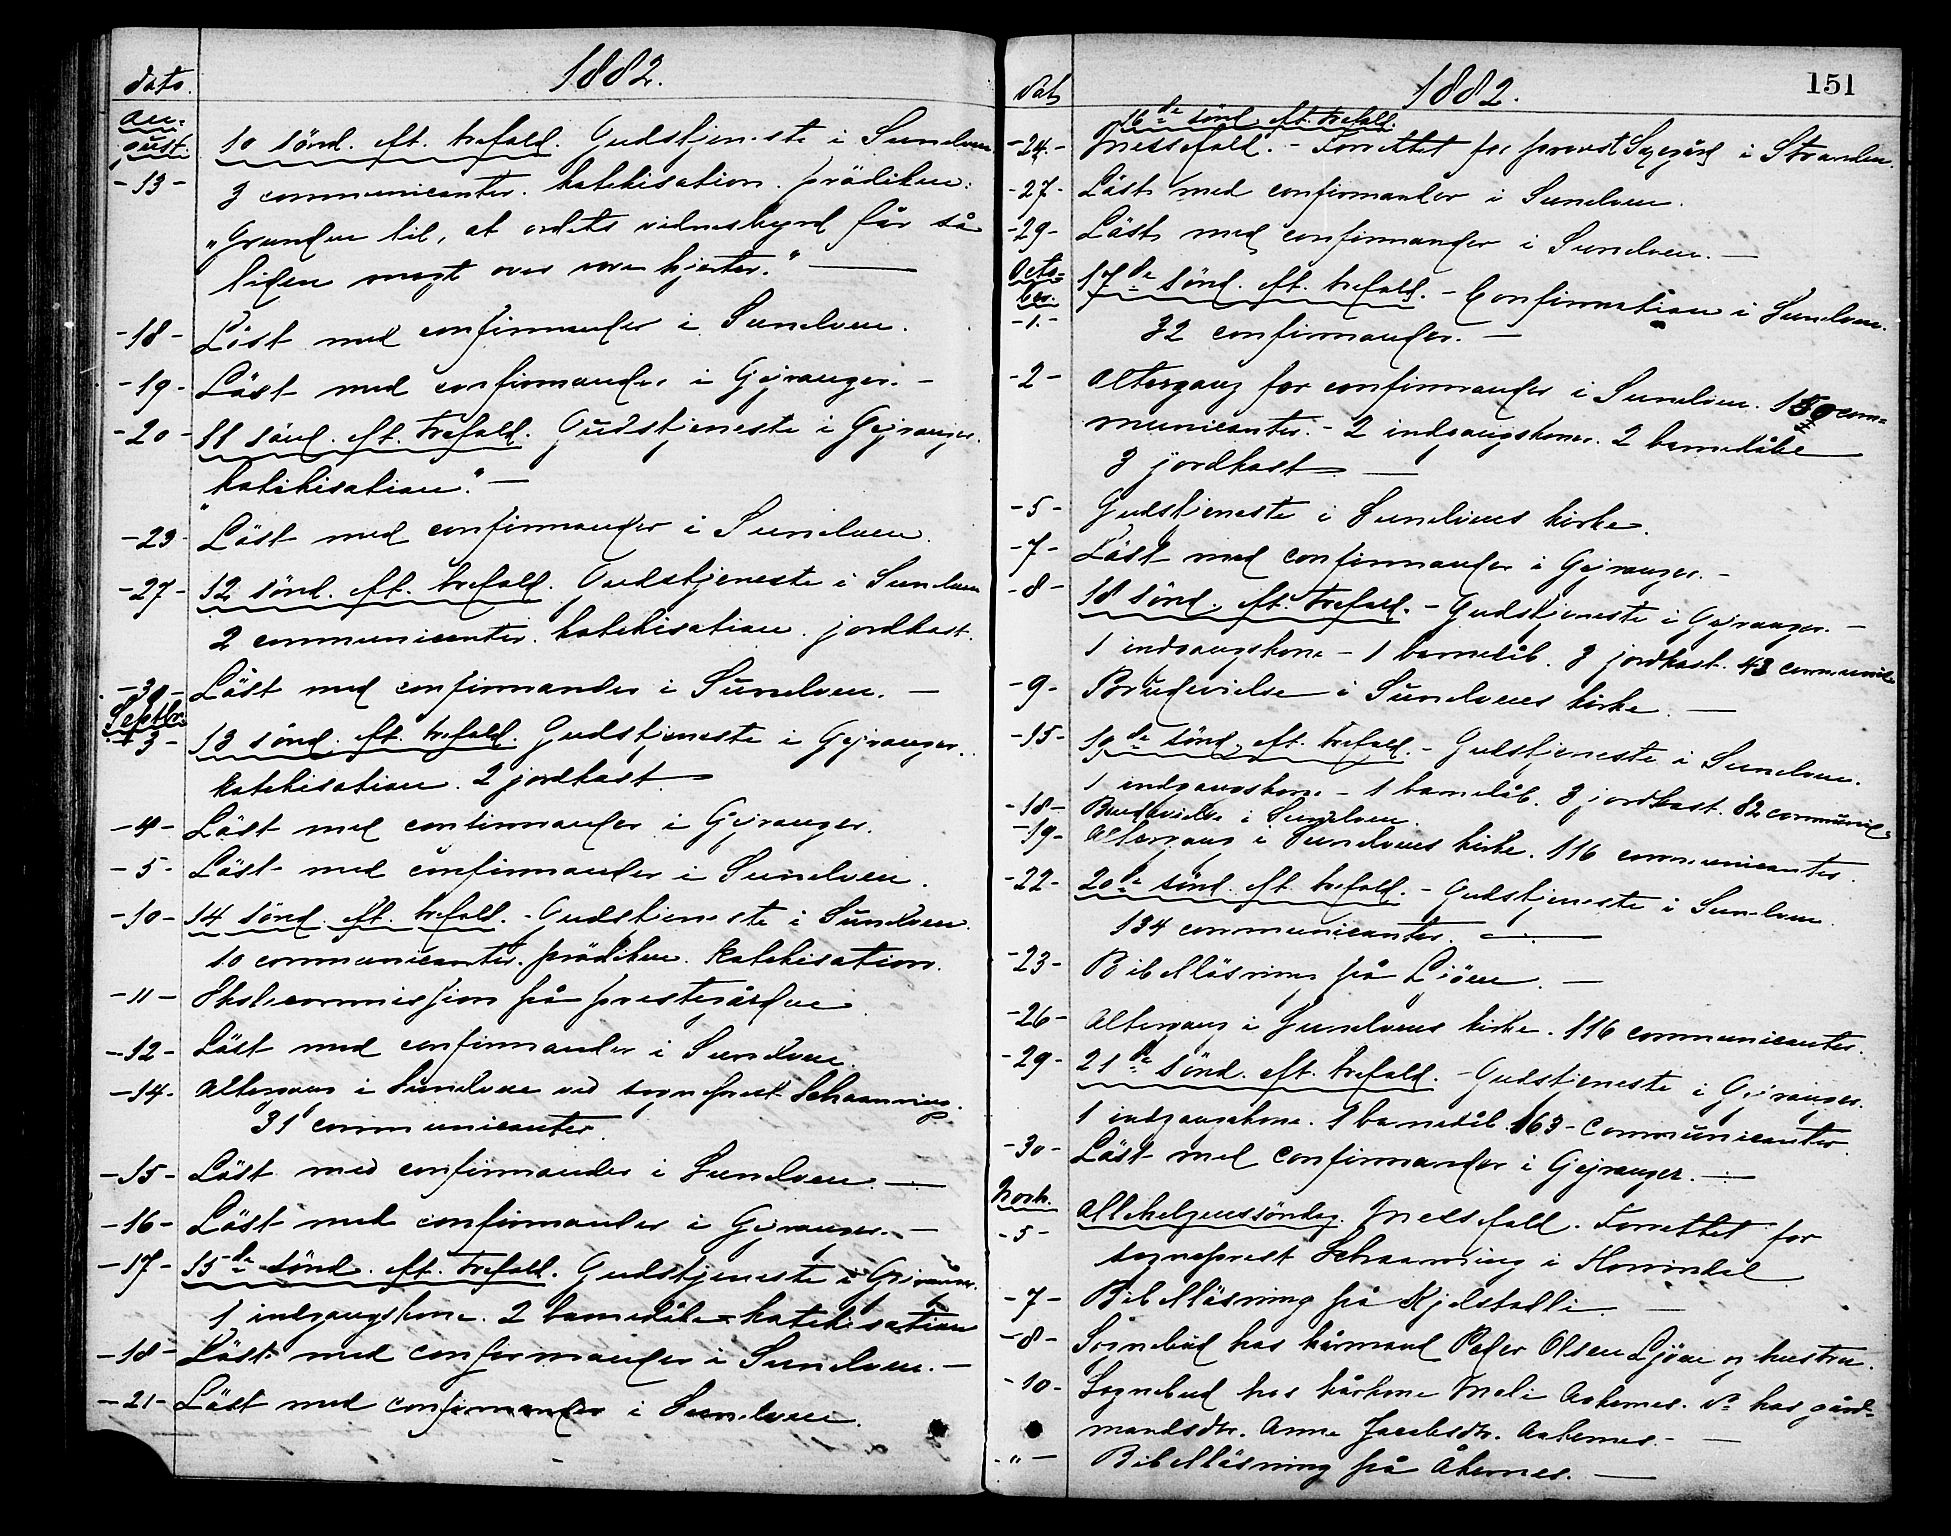 1882.
dato.
au=
gust.
10 sönd. eft. trefold. Gudstjeneste i Sunelven
-13-
3 communicanter. katekisation. prädiken:
"Grunden til, at ordets vidnesbyrd får så
liden magt over vore hjerter." —
-18- Läst med confirmander i Sunelven.
-19- Läst med confirmander i Gejranger. -
-20- 11 sönd. eft. trefold. Gudstjeneste i Gejranger.
"katekisation." —
-23- Läst med confirmander i Sunelven.
-27- 12 sönd. eft. trefold. Gudstjeneste i Sunelven
2 communicanter. katekisation. jordkast.
-30- Läst med confirmander i Sunelven. —
Septbr.
-3- 13 sönd. eft. trefold. Gudstjeneste i Gejranger.
katekisation. 2 jordkast —
-4- Läst med confirmander i Gejranger.
-5- Läst med confirmander i Sunelven.
-10- 14 sönd. eft. trefold. - Gudstjeneste i Sunelven.
10 communicanter. prädiken. katekisation.
-11- Skolecommission på prestegården
-12- Läst med confirmander i Sunelven.
-14- Altergang i Sunelven ved sogneprest Schaanning.
31 communicanter.
-15- Läst med confirmander i Sunelven. —
-16- Läst med confirmander i Gejranger. —
-17- 15de sönd. eft. trefold. Gudstjeneste i Gejranger.
1 indgangskone. 2 barnedåbe - katekisation
-18- Läst med confirmander i Sunelven. —
-21- Läst med confirmander i Sunelven.
151
1882.
Dat
16de sönd. eft. trefold.
-24- Messefald. - Forrettet for provst i Stranden.
-27- Läst med confirmander i Sunelven.
-29- Läst med confirmander i Sunelven. —
Octo=
ber.
-1.-
17de sönd. eft. trefold. - Confirmation i Sunelven.
32 confirmander. —
-2- Altergang for confirmander i Sunelven. 150 com=
municanter. - 2 indgangskoner. 2 barnedåbe
3 jordkast —
-5- Gudstjeneste i Sunelvens kirke.
-7- Läst med confirmander i Gejranger. -
-8- 18 sönd. eft. trefold. - Gudstjeneste i Gejranger. —
1 indgangskone - 1 barnedåb. 3 jordkast. 43 communic
-9- Brudevielse i Sunelvens kirke. —
-15- 19de sönd. eft. trefold. - Gudstjeneste i Sunelven.
1 indgangskone - 1 barnedåb. 3 jordkast. 82 communic.
-18- Brudevielse i Sunelven.
-19- Altergang i Sunelvens kirke. 116 communicanter.
-22- 20de sönd. eft. trefold. - Gudstjeneste i Sunelven
134 communicanter. —
-23- Bibelläsning på Ljöen. —
-26- Altergang i Sunelvens kirke. 116 communicanter.
-29- 21de sönd. eft. trefold. - Gudstjeneste i Gejranger.
1 indgangskone. 1 barnedåb. 163 - communicanter
-30- Läst med confirmander i Gejranger. —
Novb.
-5-
Allehelgenssöndag. Messefald. Forrettet for
sogneprest Schaanning i Hornindal
-7- Bibelläsning på Kjelstadli —
-8- Sognebud hos kårmand Peder Olsen Ljöen og hustru.
-10- Sognebud hos kårkone Aakernes. do hos gård=
mandsdtr. Anne Jacobsdtr. Aakernes. - —
- " - Bibelläsning på Åkernes. —